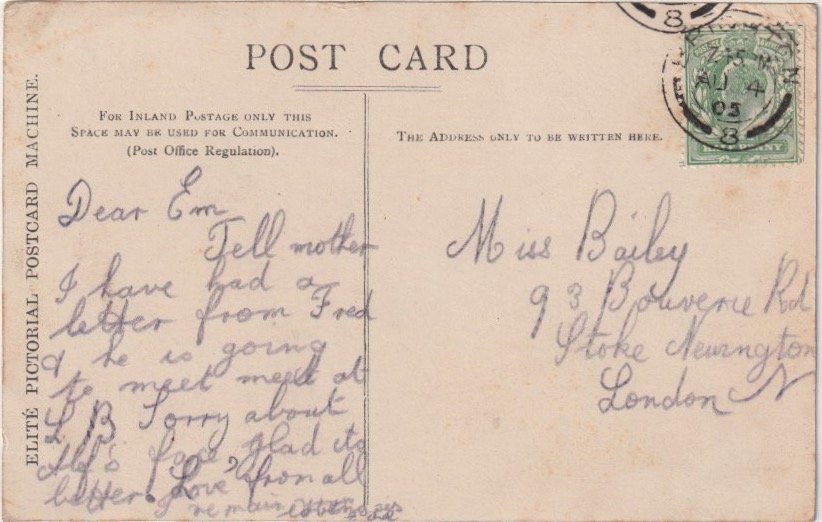 POST CARD
FOR INLAND POSTAGE ONLY THIS
SPACE MAY BE USED FOR COMMUNICATION.
(Post Office Regulation).
THE ADDRESS ONLY TO BE WRITTEN HERE.
ELITÉ PICTORIAL POSTCARD MACHINE.
Dear Em
Tell mother
I have had a
letter from Fred
& he is going
to meet meet at
L B Sorry about
Alf's face glad its
better. Love from all
I remain
Miss Bailey
93 Bouverie Rd
Stoke Newington
London N
AU 4
05
8
8
HALFPENNY